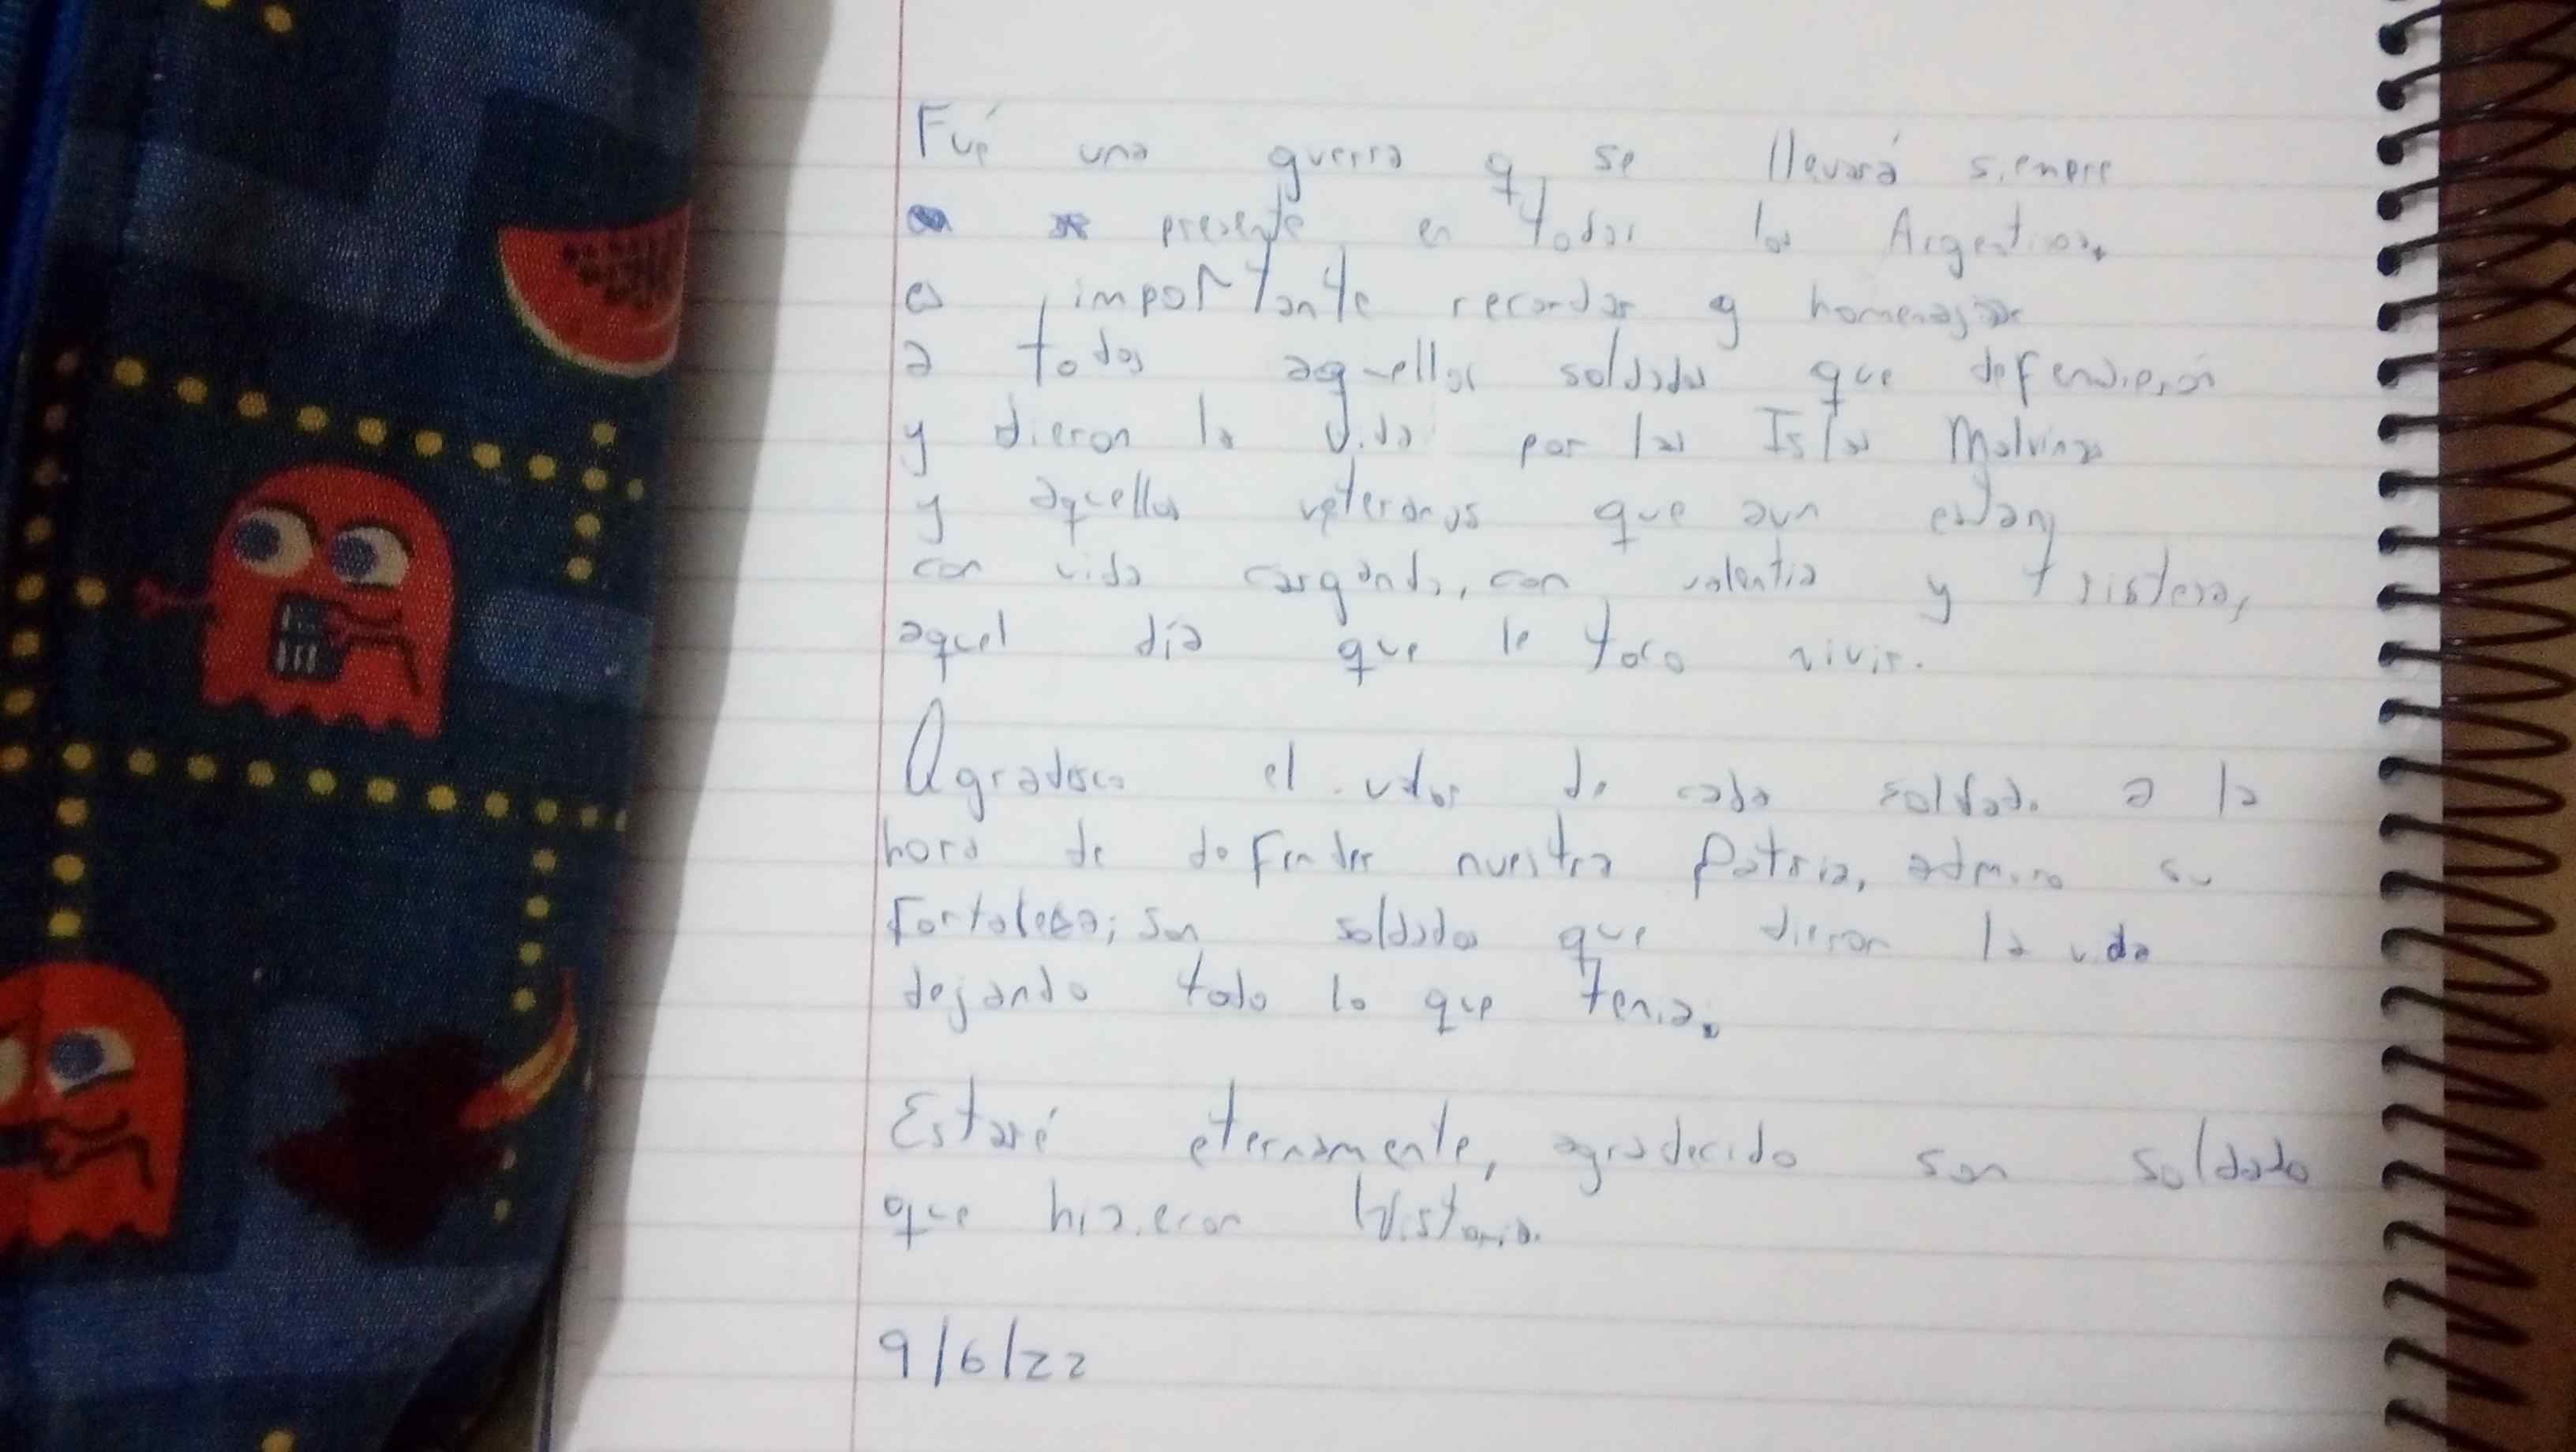 Fué una guerra q se llevará siempre
presente en todos los Argentinos
es importante recordar y homenajear
a todos aquellos soldados que defendieron
y dieron la vida por las Islas Malvinas
y aquellos veteranos que aun estan
con vida cargando, con valentia y tristesa,
aquel día que le toco vivir.
Agradesco el valor de cada soldado a la
hora de defender nuestra Patria, admiro su
Fortalesa; son soldados que dieron la vida
dejando todo lo que tenia.
Estaré eternamente, agradecido son soldado
que hizieron Historia.
9/6/22